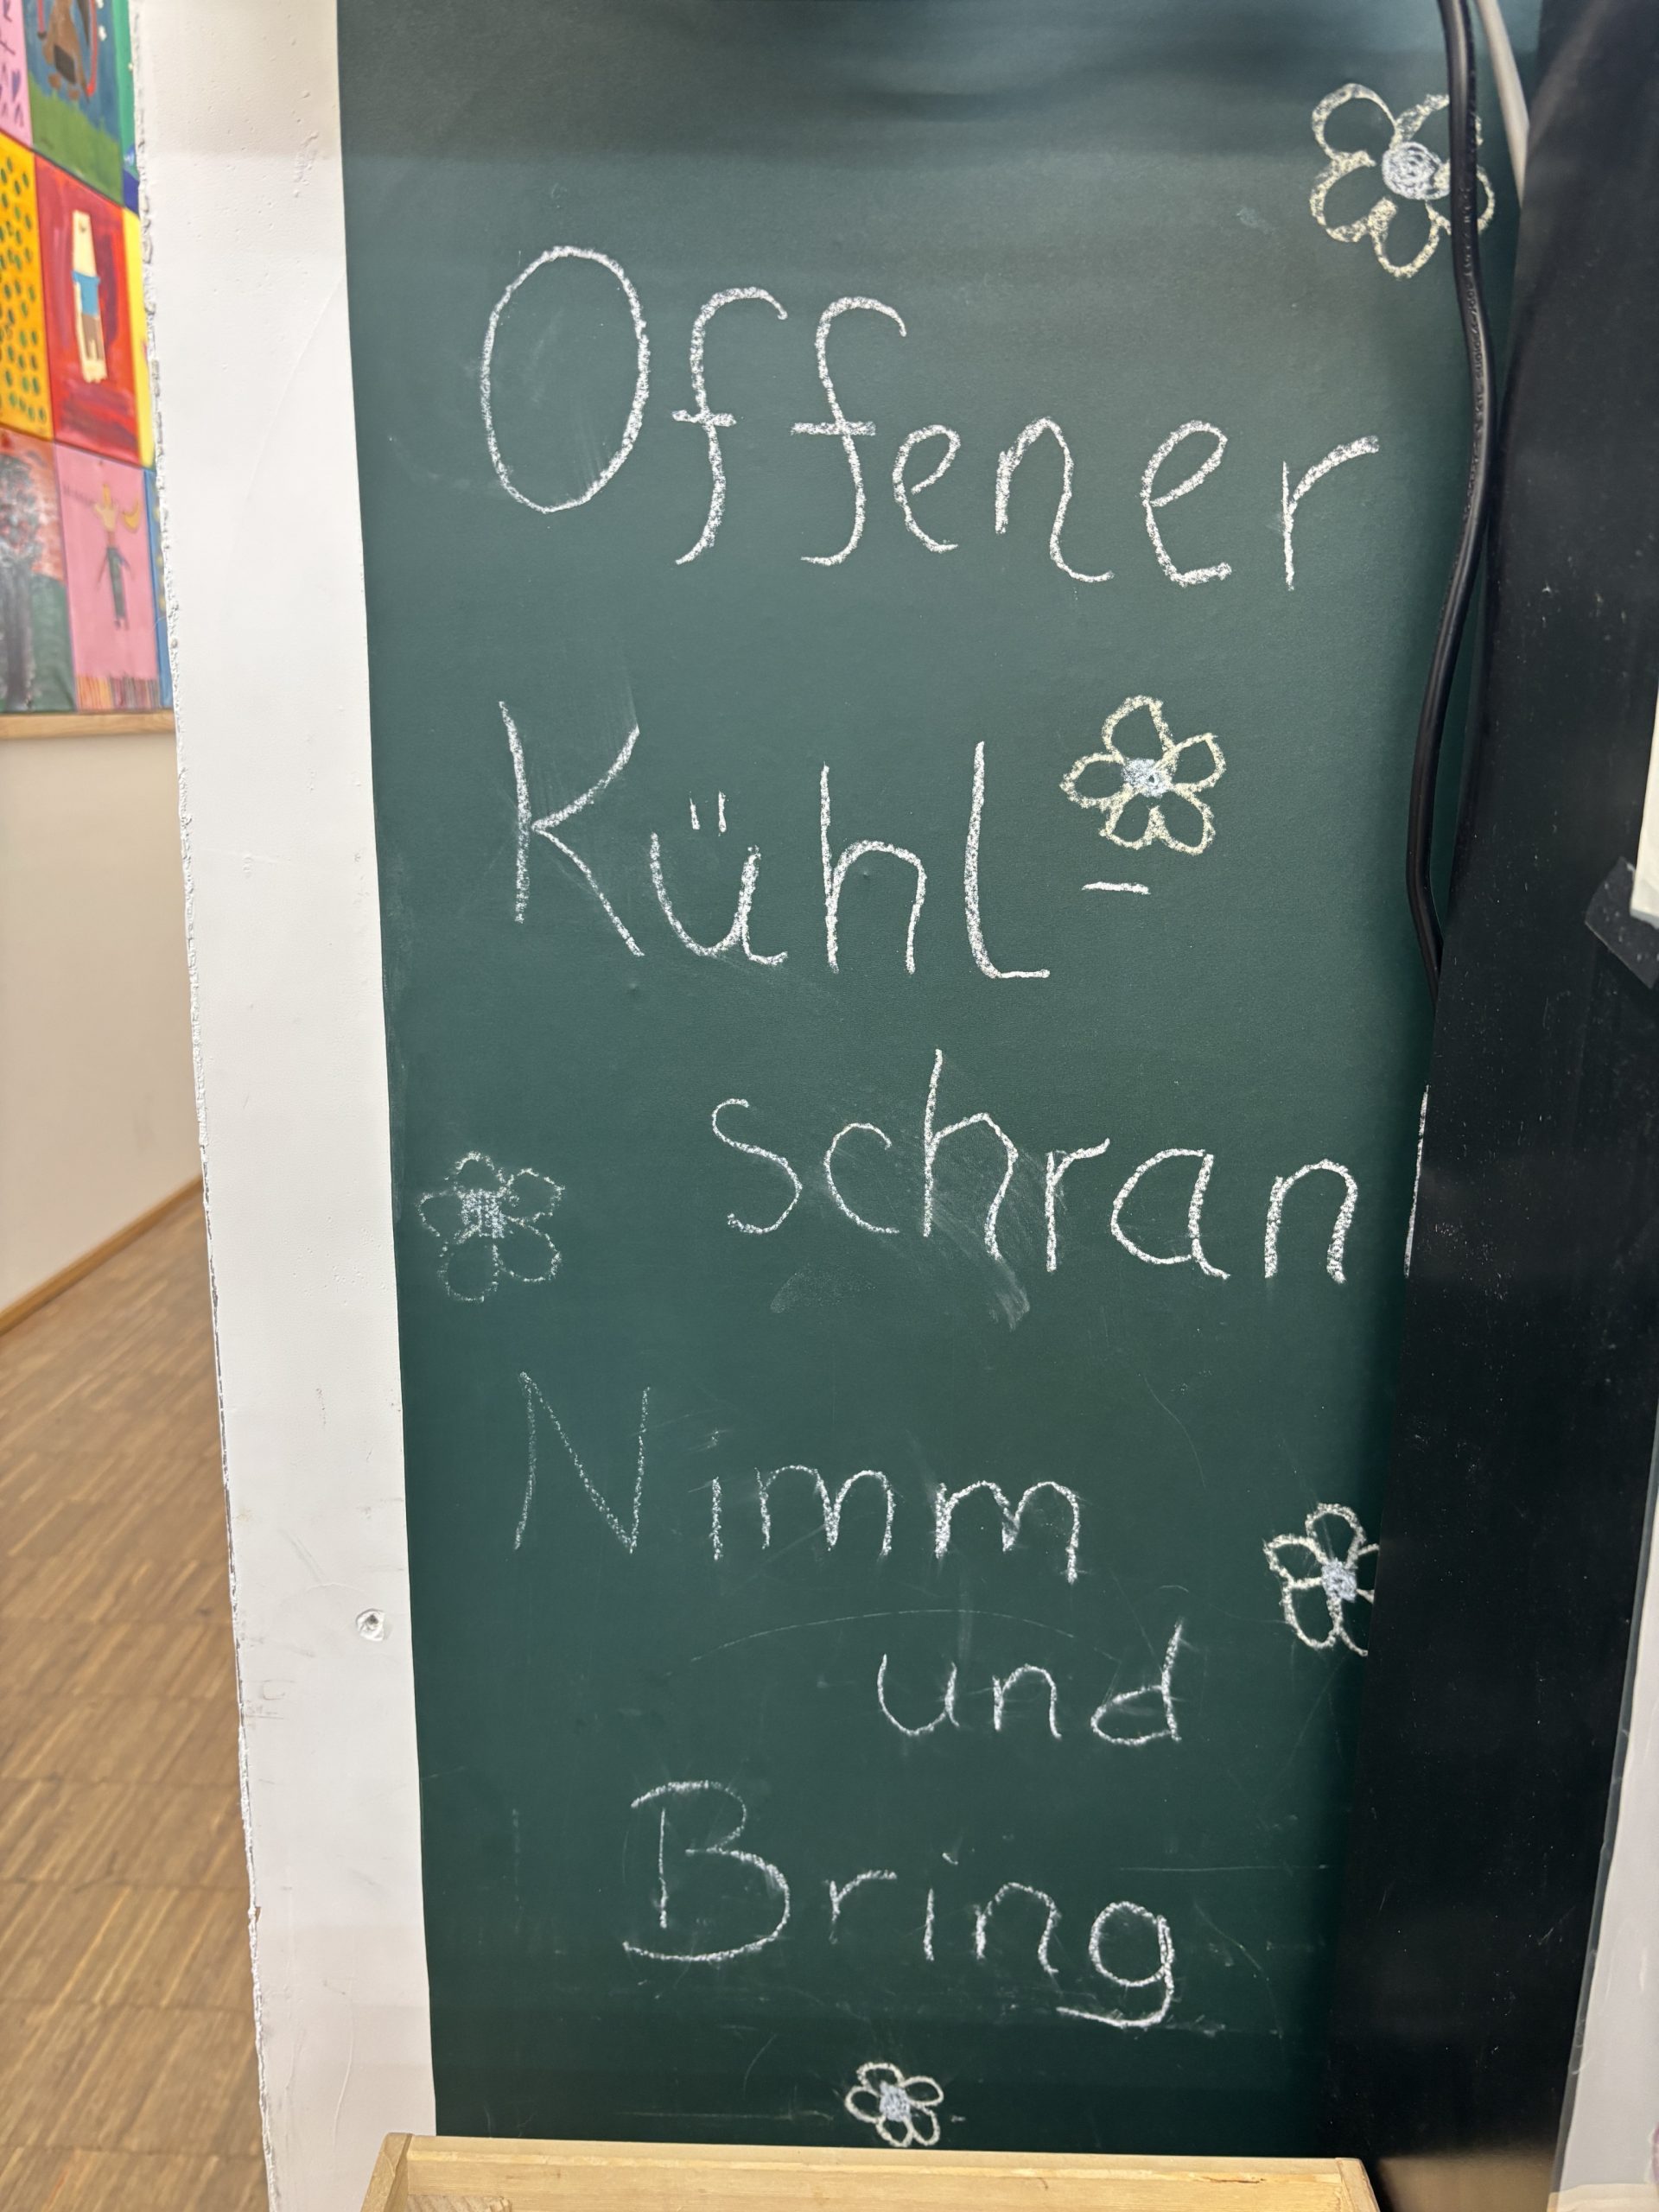 Offener
Kühl-
schran
Nimm
und
Bring